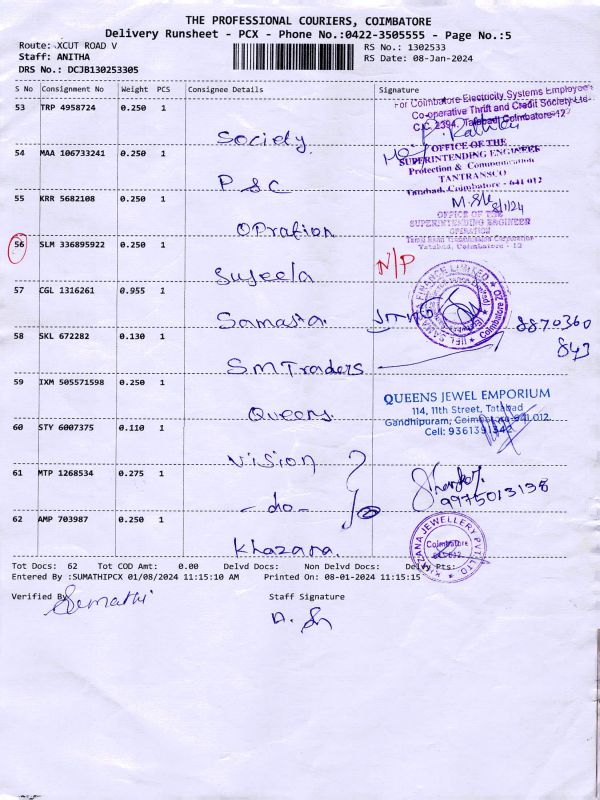 THE PROFESSIONAL COURIERS, COIMBATORE
Delivery Runsheet - PCX - Phone No.:0422-3505555 - Page No.:5
Route: XCUT ROAD V
RS No.: 1302533
Staff: ANITHA
RS Date: 08-Jan-2024
DRS No.: DCJB130253305
S No Consignment No Weight PCS Consignee Details Signature
53 TRP 4958724 0.250 1 Society
For Coimbatore Electricity Systems Employees
Co-operative Thrift and Credit Society Ltd
C.C. 2394, Tatabad, Coimbatore-12
54 MAA 106733241 0.250 1 P S C
OFFICE OF THE
SUPERINTENDING ENGINEER
Protection & Communication
TANTRANSCO
Tatabad, Coimbatore - 641 012
55 KRR 5682108 0.250 1 OPration
8/1/24
OFFICE OF THE
SUPERINTENDING ENGINEER
OPERATION
Tatabad, Coimbatore - 12
56 SLM 336895922 0.250 1 Sujeela N/P
57 CGL 1316261 0.955 1 Samasta
IIFL SAMASTA FINANCE LIMITED
Coimbatore
58 SKL 672282 0.130 1 S.M Traders 8870360
843
59 IXM 505571598 0.250 1 Queens
QUEENS JEWEL EMPORIUM
114, 11th Street, Tatabad
Gandhipuram, Coimbatore-641 012
Cell: 9361391342
60 STY 6007375 0.110 1 Vision
61 MTP 1268534 0.275 1 - do - 9975013138
62 AMP 703987 0.250 1 Khazana
KHAZANA JEWELLERY PVT LTD
Coimbatore
641 012
Tot Docs: 62 Tot COD Amt: 0.00 Delvd Docs: Non Delvd Docs: Delvd Pts:
Entered By :SUMATHIPCX 01/08/2024 11:15:10 AM Printed On: 08-01-2024 11:15:15
Verified By Staff Signature
Sumathi